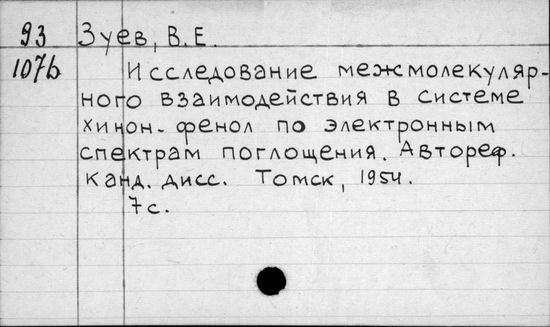 93 Зуев, В.Е.
107b Исследование межмолекуляр-
ного взаимодействия в системе
хинон-фенол по электронным
спектрам поглощения. Автореф.
канд. дисс. Томск, 1954.
7с.